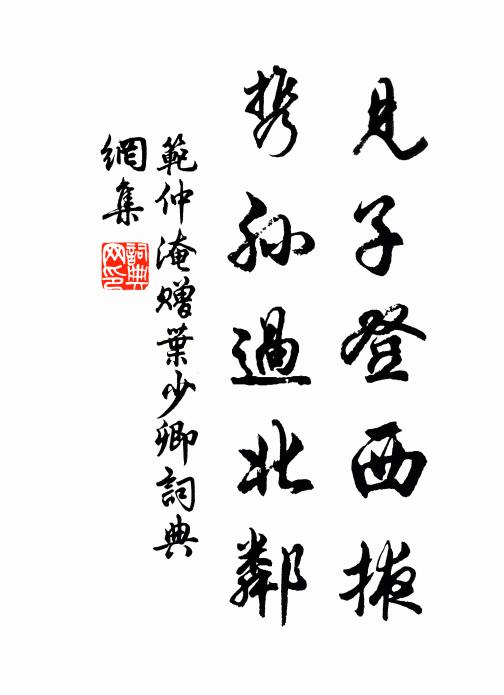 見子登西掖
携孙過北鄰
範仲淹赠葉少卿詞典
網集
詞典
网印